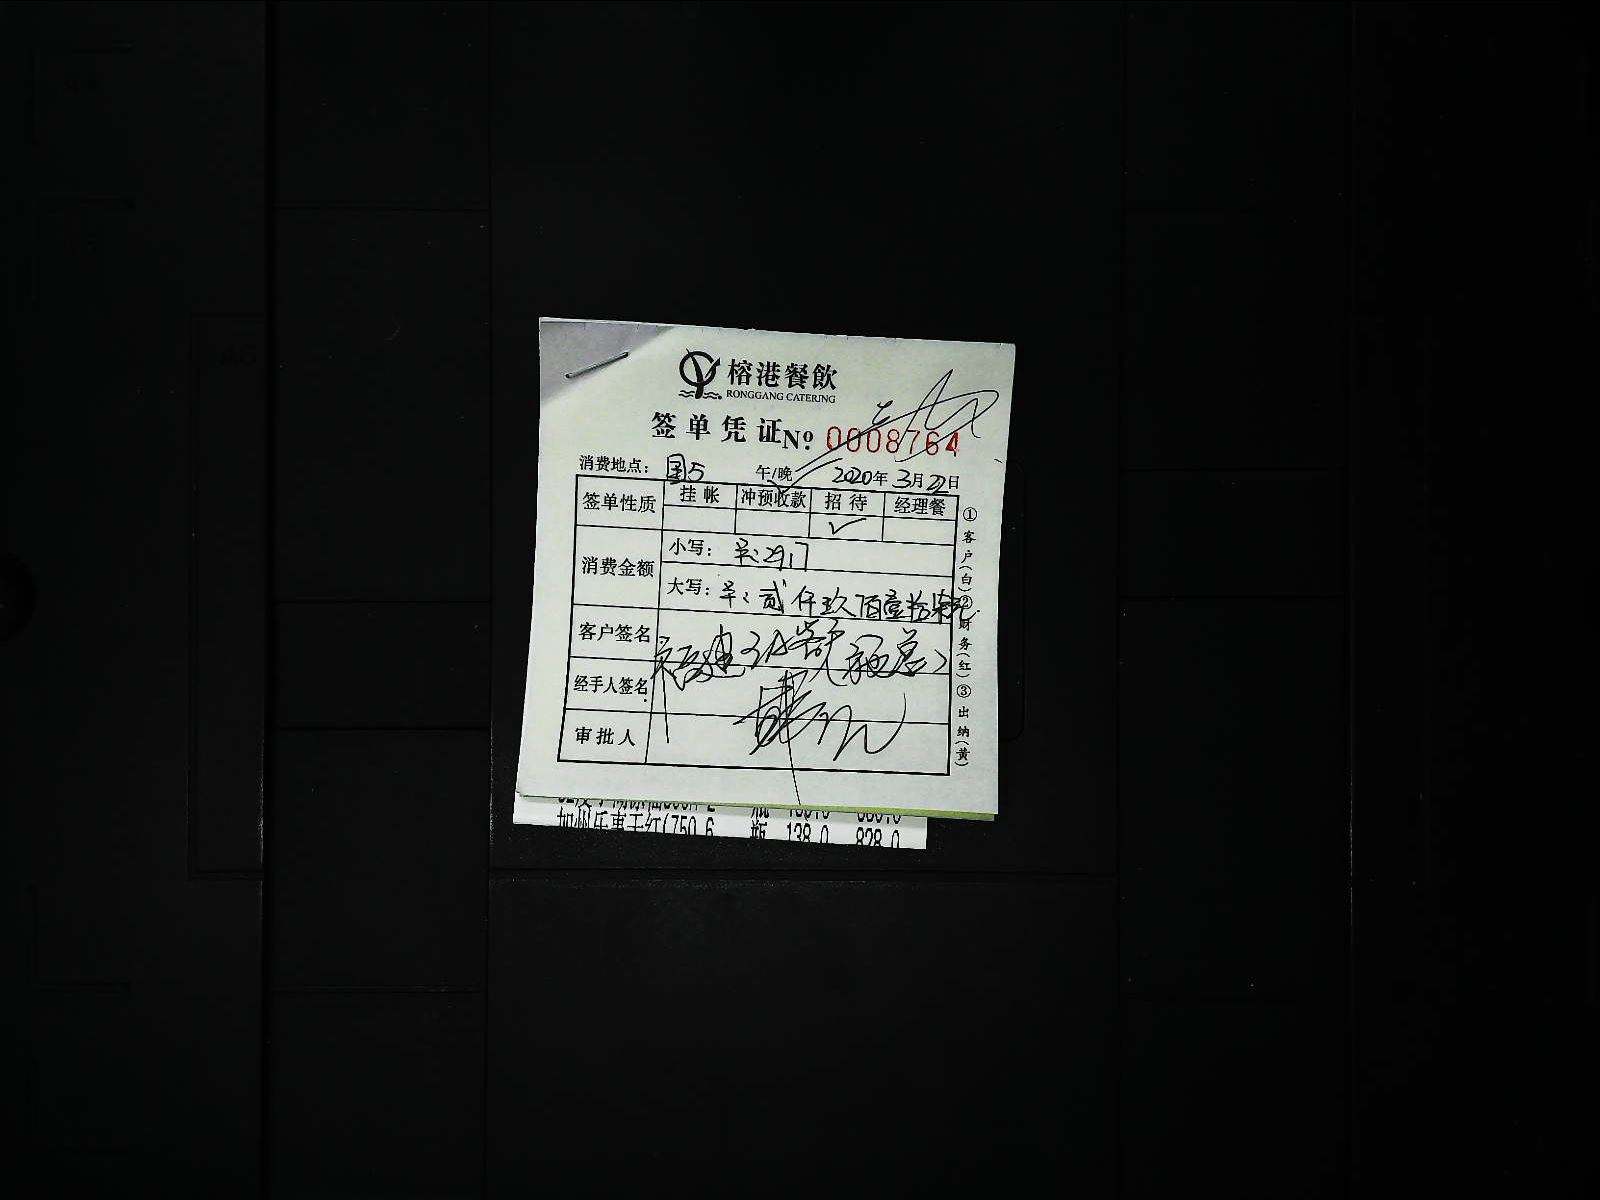 榕港餐飲
RONGGANG CATERING
签单凭证 Nº 0008764
消费地点： 国5 午/晚 2020年3月22日
签单性质 挂帐 冲预收款 招待 经理餐
✓
消费金额 小写： 2917
大写： 贰仟玖佰壹拾柒元
客户签名
经手人签名
审批人
①客户(白)②财务(红)③出纳(黄)
加州乐事干红(750 6 瓶 138.0 828.0